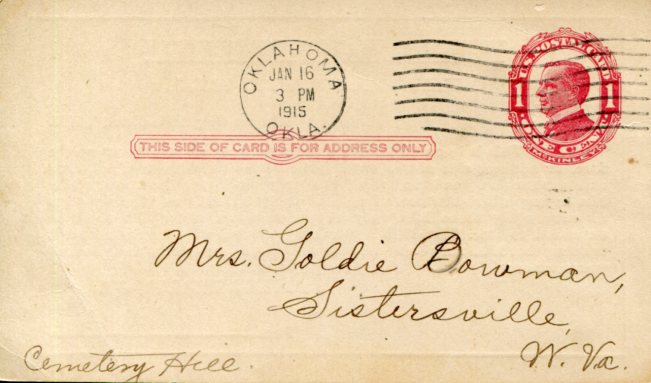 U.S. POSTAL CARD
1 1
ONE CENT
McKINLEY
OKLAHOMA
JAN 16
3 PM
1915
OKLA.
THIS SIDE OF CARD IS FOR ADDRESS ONLY
Mrs. Goldie Bowman,
Sistersville,
W. Va.
Cemetery Hill.